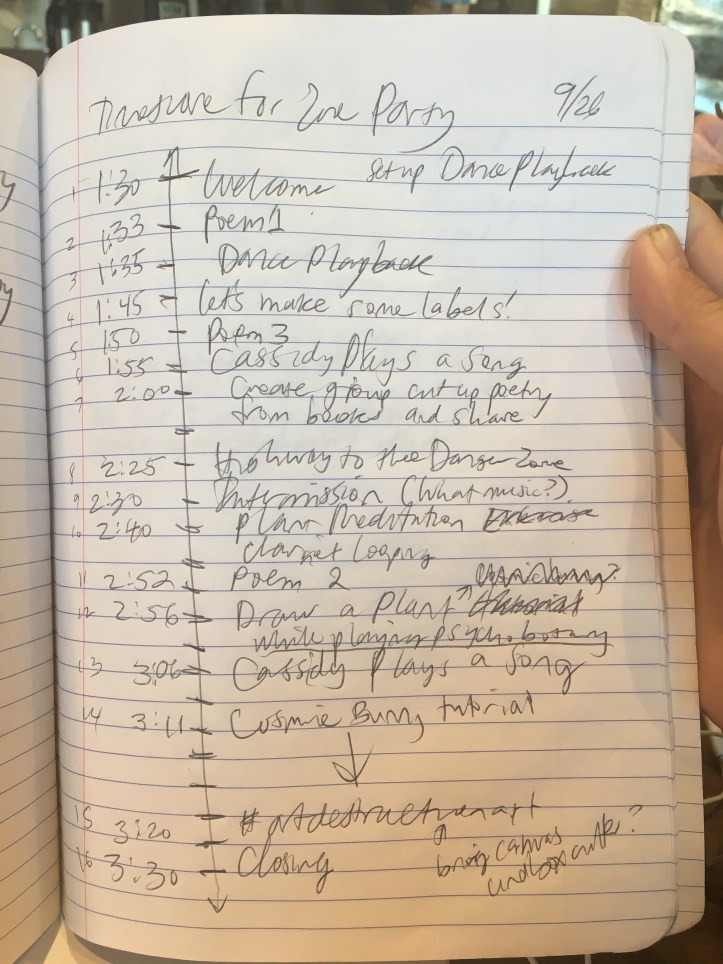 Timescore for Zine Party 9/26
1 1:30 Welcome setup Dance Playback
2 1:33 Poem 1
3 1:35 Dance Playback
4 1:45 let's make some labels!
5 1:50 Poem 3
6 1:55 Cassidy Plays a Song
7 2:00 Create group cut up poetry
from books and share
8 2:25 Highway to the Danger Zone
9 2:30 Intermission (What music?)
10 2:40 Plant Meditation Exercise
clarinet looping
11 2:52 Poem 2
12 2:56 Draw a Plant tutorial
while playing psychobotany
13 3:06 Cassidy Plays a Song
14 3:11 Cosmic Bunny tutorial
15 3:20 # artdestructionart
16 3:30 Closing
bring canvas
and box cutter?